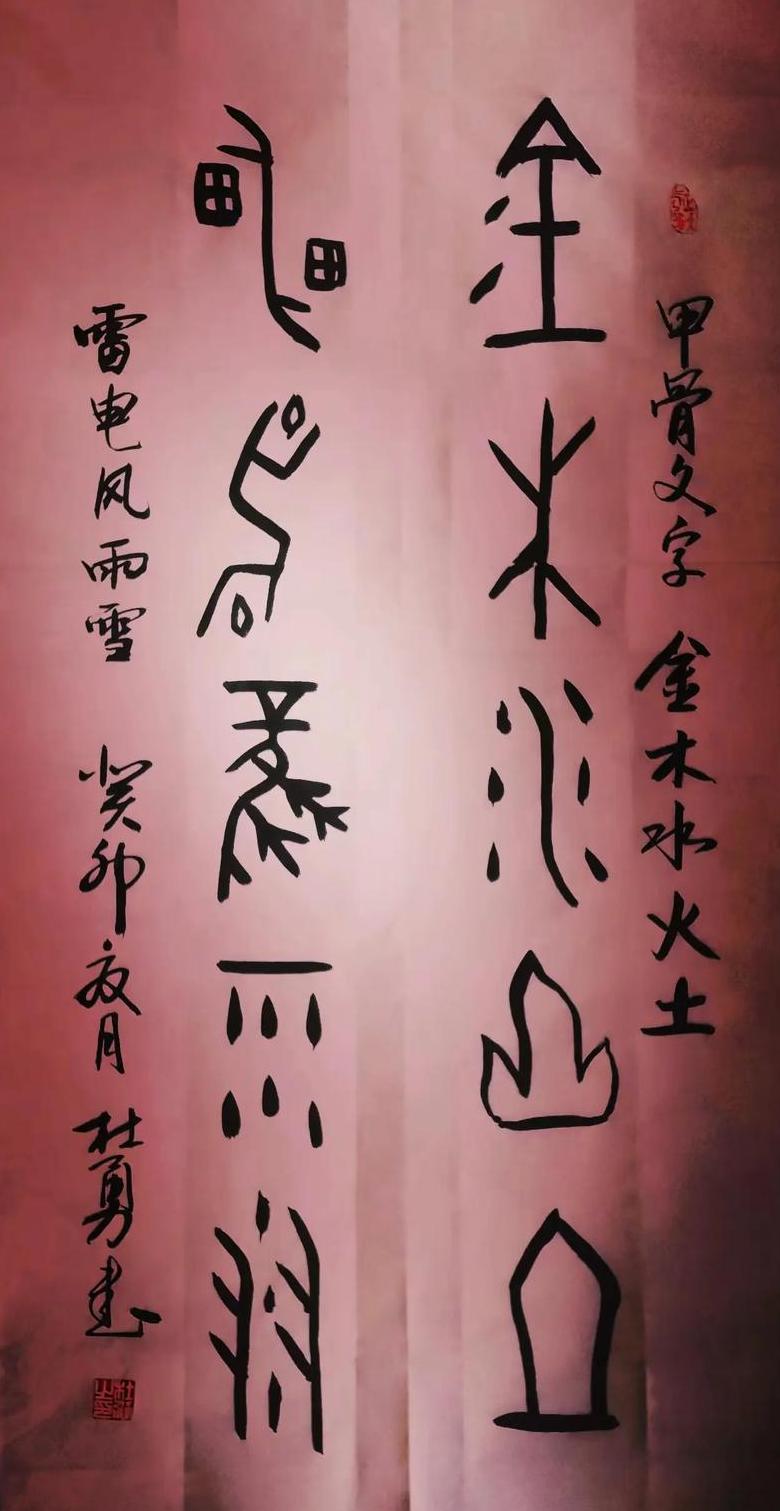 甲骨文字 金木水火土
金木水火土
雷电风雨雪
雷电风雨雪 癸卯夜月 杜勇书